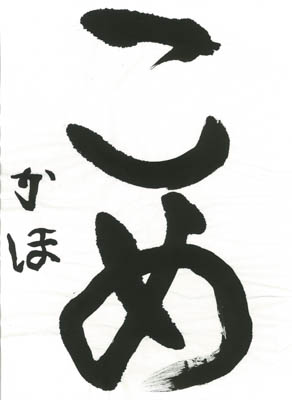 こめ
かほ